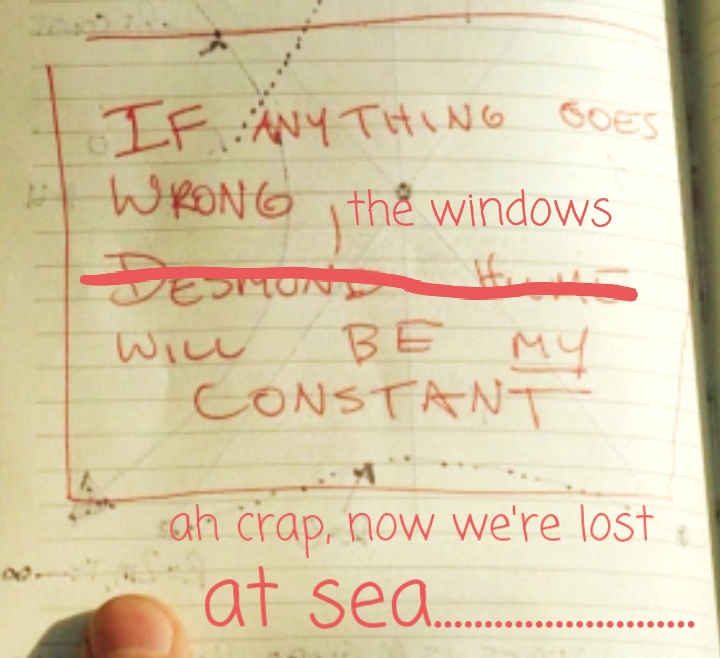 IF ANYTHING GOES
WRONG, the windows
DESMOND HUME
WILL BE MY
CONSTANT
ah crap, now we're lost
at sea..........................